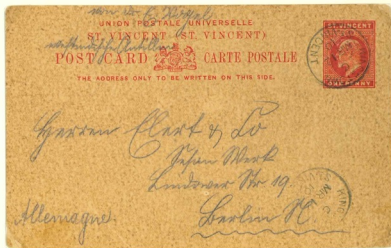 von
UNION POSTALE UNIVERSELLE
ST. VINCENT (ST. VINCENT)
POST CARD CARTE POSTALE
THE ADDRESS ONLY TO BE WRITTEN ON THIS SIDE.
ST VINCENT
ONE PENNY
Herren Elert & Co
Werk
Lindower Str 19.
Berlin N.
Allemagne.